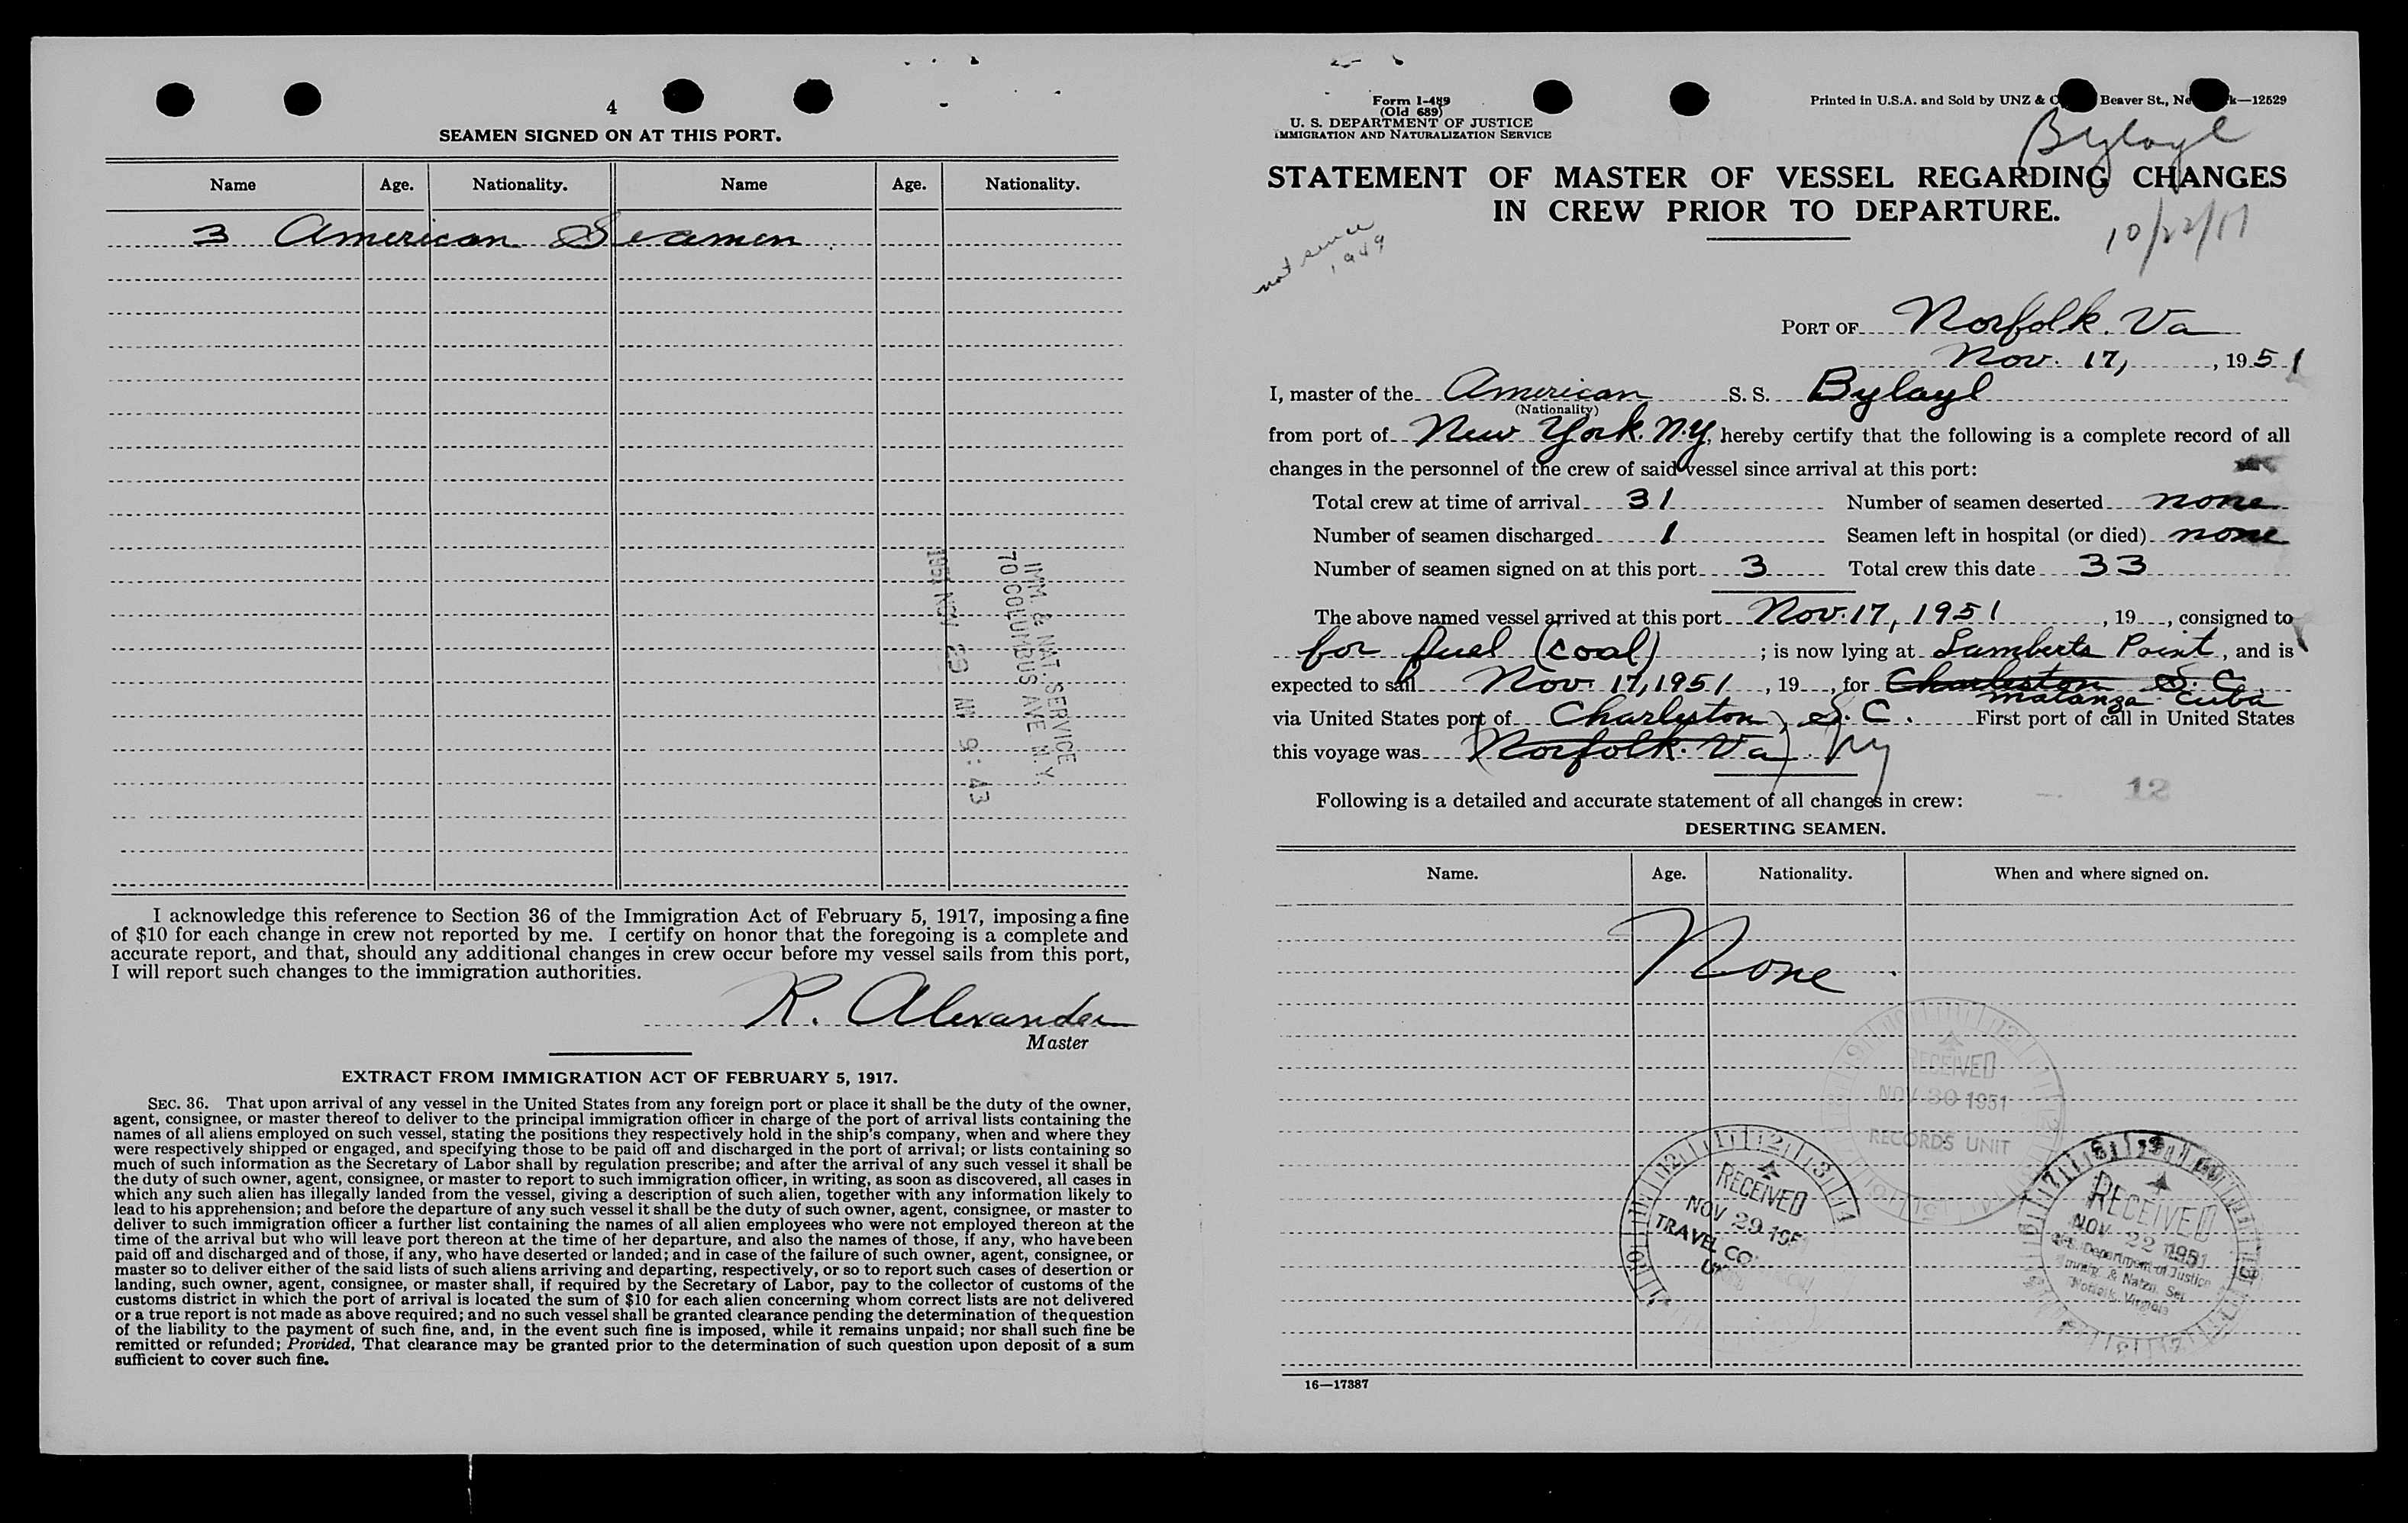 4
SEAMEN SIGNED ON AT THIS PORT.
Name Age. Nationality. Name Age. Nationality.
3 American Seamen
IMM. & NAT. SERVICE
70 COLUMBUS AVE N.Y.
1951 NOV 29 AM 9:43
I acknowledge this reference to Section 36 of the Immigration Act of February 5, 1917, imposing a fine
of $10 for each change in crew not reported by me. I certify on honor that the foregoing is a complete and
accurate report, and that, should any additional changes in crew occur before my vessel sails from this port,
I will report such changes to the immigration authorities.
R. Alexander
Master
EXTRACT FROM IMMIGRATION ACT OF FEBRUARY 5, 1917.
SEC. 36. That upon arrival of any vessel in the United States from any foreign port or place it shall be the duty of the owner,
agent, consignee, or master thereof to deliver to the principal immigration officer in charge of the port of arrival lists containing the
names of all aliens employed on such vessel, stating the positions they respectively hold in the ship's company, when and where they
were respectively shipped or engaged, and specifying those to be paid off and discharged in the port of arrival; or lists containing so
much of such information as the Secretary of Labor shall by regulation prescribe; and after the arrival of any such vessel it shall be
the duty of such owner, agent, consignee, or master to report to such immigration officer, in writing, as soon as discovered, all cases in
which any such alien has illegally landed from the vessel, giving a description of such alien, together with any information likely to
lead to his apprehension; and before the departure of any such vessel it shall be the duty of such owner, agent, consignee, or master to
deliver to such immigration officer a further list containing the names of all alien employees who were not employed thereon at the
time of the arrival but who will leave port thereon at the time of her departure, and also the names of those, if any, who have been
paid off and discharged and of those, if any, who have deserted or landed; and in case of the failure of such owner, agent, consignee, or
master so to deliver either of the said lists of such aliens arriving and departing, respectively, or so to report such cases of desertion or
landing, such owner, agent, consignee, or master shall, if required by the Secretary of Labor, pay to the collector of customs of the
customs district in which the port of arrival is located the sum of $10 for each alien concerning whom correct lists are not delivered
or a true report is not made as above required; and no such vessel shall be granted clearance pending the determination of the question
of the liability to the payment of such fine, and, in the event such fine is imposed, while it remains unpaid; nor shall such fine be
remitted or refunded; Provided, That clearance may be granted prior to the determination of such question upon deposit of a sum
sufficient to cover such fine.
Form I-489
(Old 689)
U. S. DEPARTMENT OF JUSTICE
IMMIGRATION AND NATURALIZATION SERVICE
Printed in U.S.A. and Sold by UNZ & C Beaver St., Ne k—12529
Bylayl
STATEMENT OF MASTER OF VESSEL REGARDING CHANGES
IN CREW PRIOR TO DEPARTURE.
not since
1949
PORT OF Norfolk. Va
Nov. 17, , 1951
I, master of the American S. S. Bylayl
(Nationality)
from port of New York. N.Y, hereby certify that the following is a complete record of all
changes in the personnel of the crew of said vessel since arrival at this port:
Total crew at time of arrival 31 Number of seamen deserted none
Number of seamen discharged 1 Seamen left in hospital (or died) none
Number of seamen signed on at this port 3 Total crew this date 33
The above named vessel arrived at this port Nov. 17, 1951 , 19 , consigned to
for fuel (coal) ; is now lying at Lamberts Point, and is
expected to sail Nov. 17, 1951 , 19 , for Charleston S. C.
Matanza Cuba
via United States port of Charleston, S. C. First port of call in United States
this voyage was (Norfolk. Va) ny
Following is a detailed and accurate statement of all changes in crew:
12
DESERTING SEAMEN.
Name. Age. Nationality. When and where signed on.
None
RECEIVED
NOV 30 1951
RECORDS UNIT
RECEIVED
NOV 29 195
TRAVEL CO
RECEIVED
NOV 22 1951
U.S. Department of Justice
Immig. & Natzn. Ser.
Norfolk, Virginia
16—17387